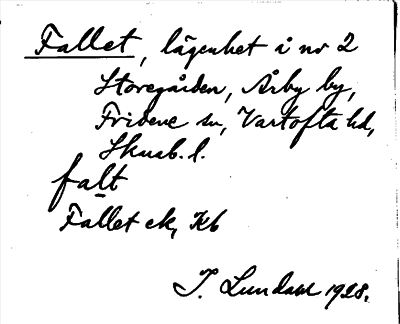 Fallet, lägenhet å nr 2
Storegården, Årby by,
Fridene sn, Vartofta hd,
Skarab. l.
falt
Fallet ek, Kb
I. Lundahl 1928.